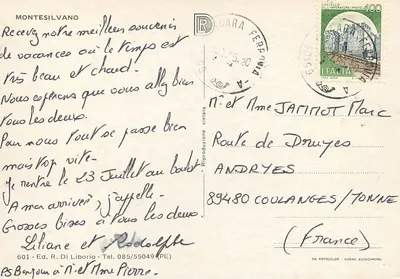 MONTESILVANO
Recevez notre meilleur souvenir
de vacances où le temps est
très beau et chaud.
Nous espérons que vous allez bien
tous les deux.
Pour nous tout se passe bien
mais trop vite.
Je rentre le 23 Juillet au boulot
A mon arrivée j'appelle.
Grosses bises à tous les deux
Liliane et Rodolphe
601 - Ed. R. Di Liborio - Tel. 085/55049 (PE)
PS Bonjour à Mr et Mme Pierre.
Riproduzione vietata
PESCARA FERROVIA
400
ITALIA
Mr et Mme JAMMOT Marc
Route de Druyes
ANDRYES
89480 COULANGES/YONNE
(France)